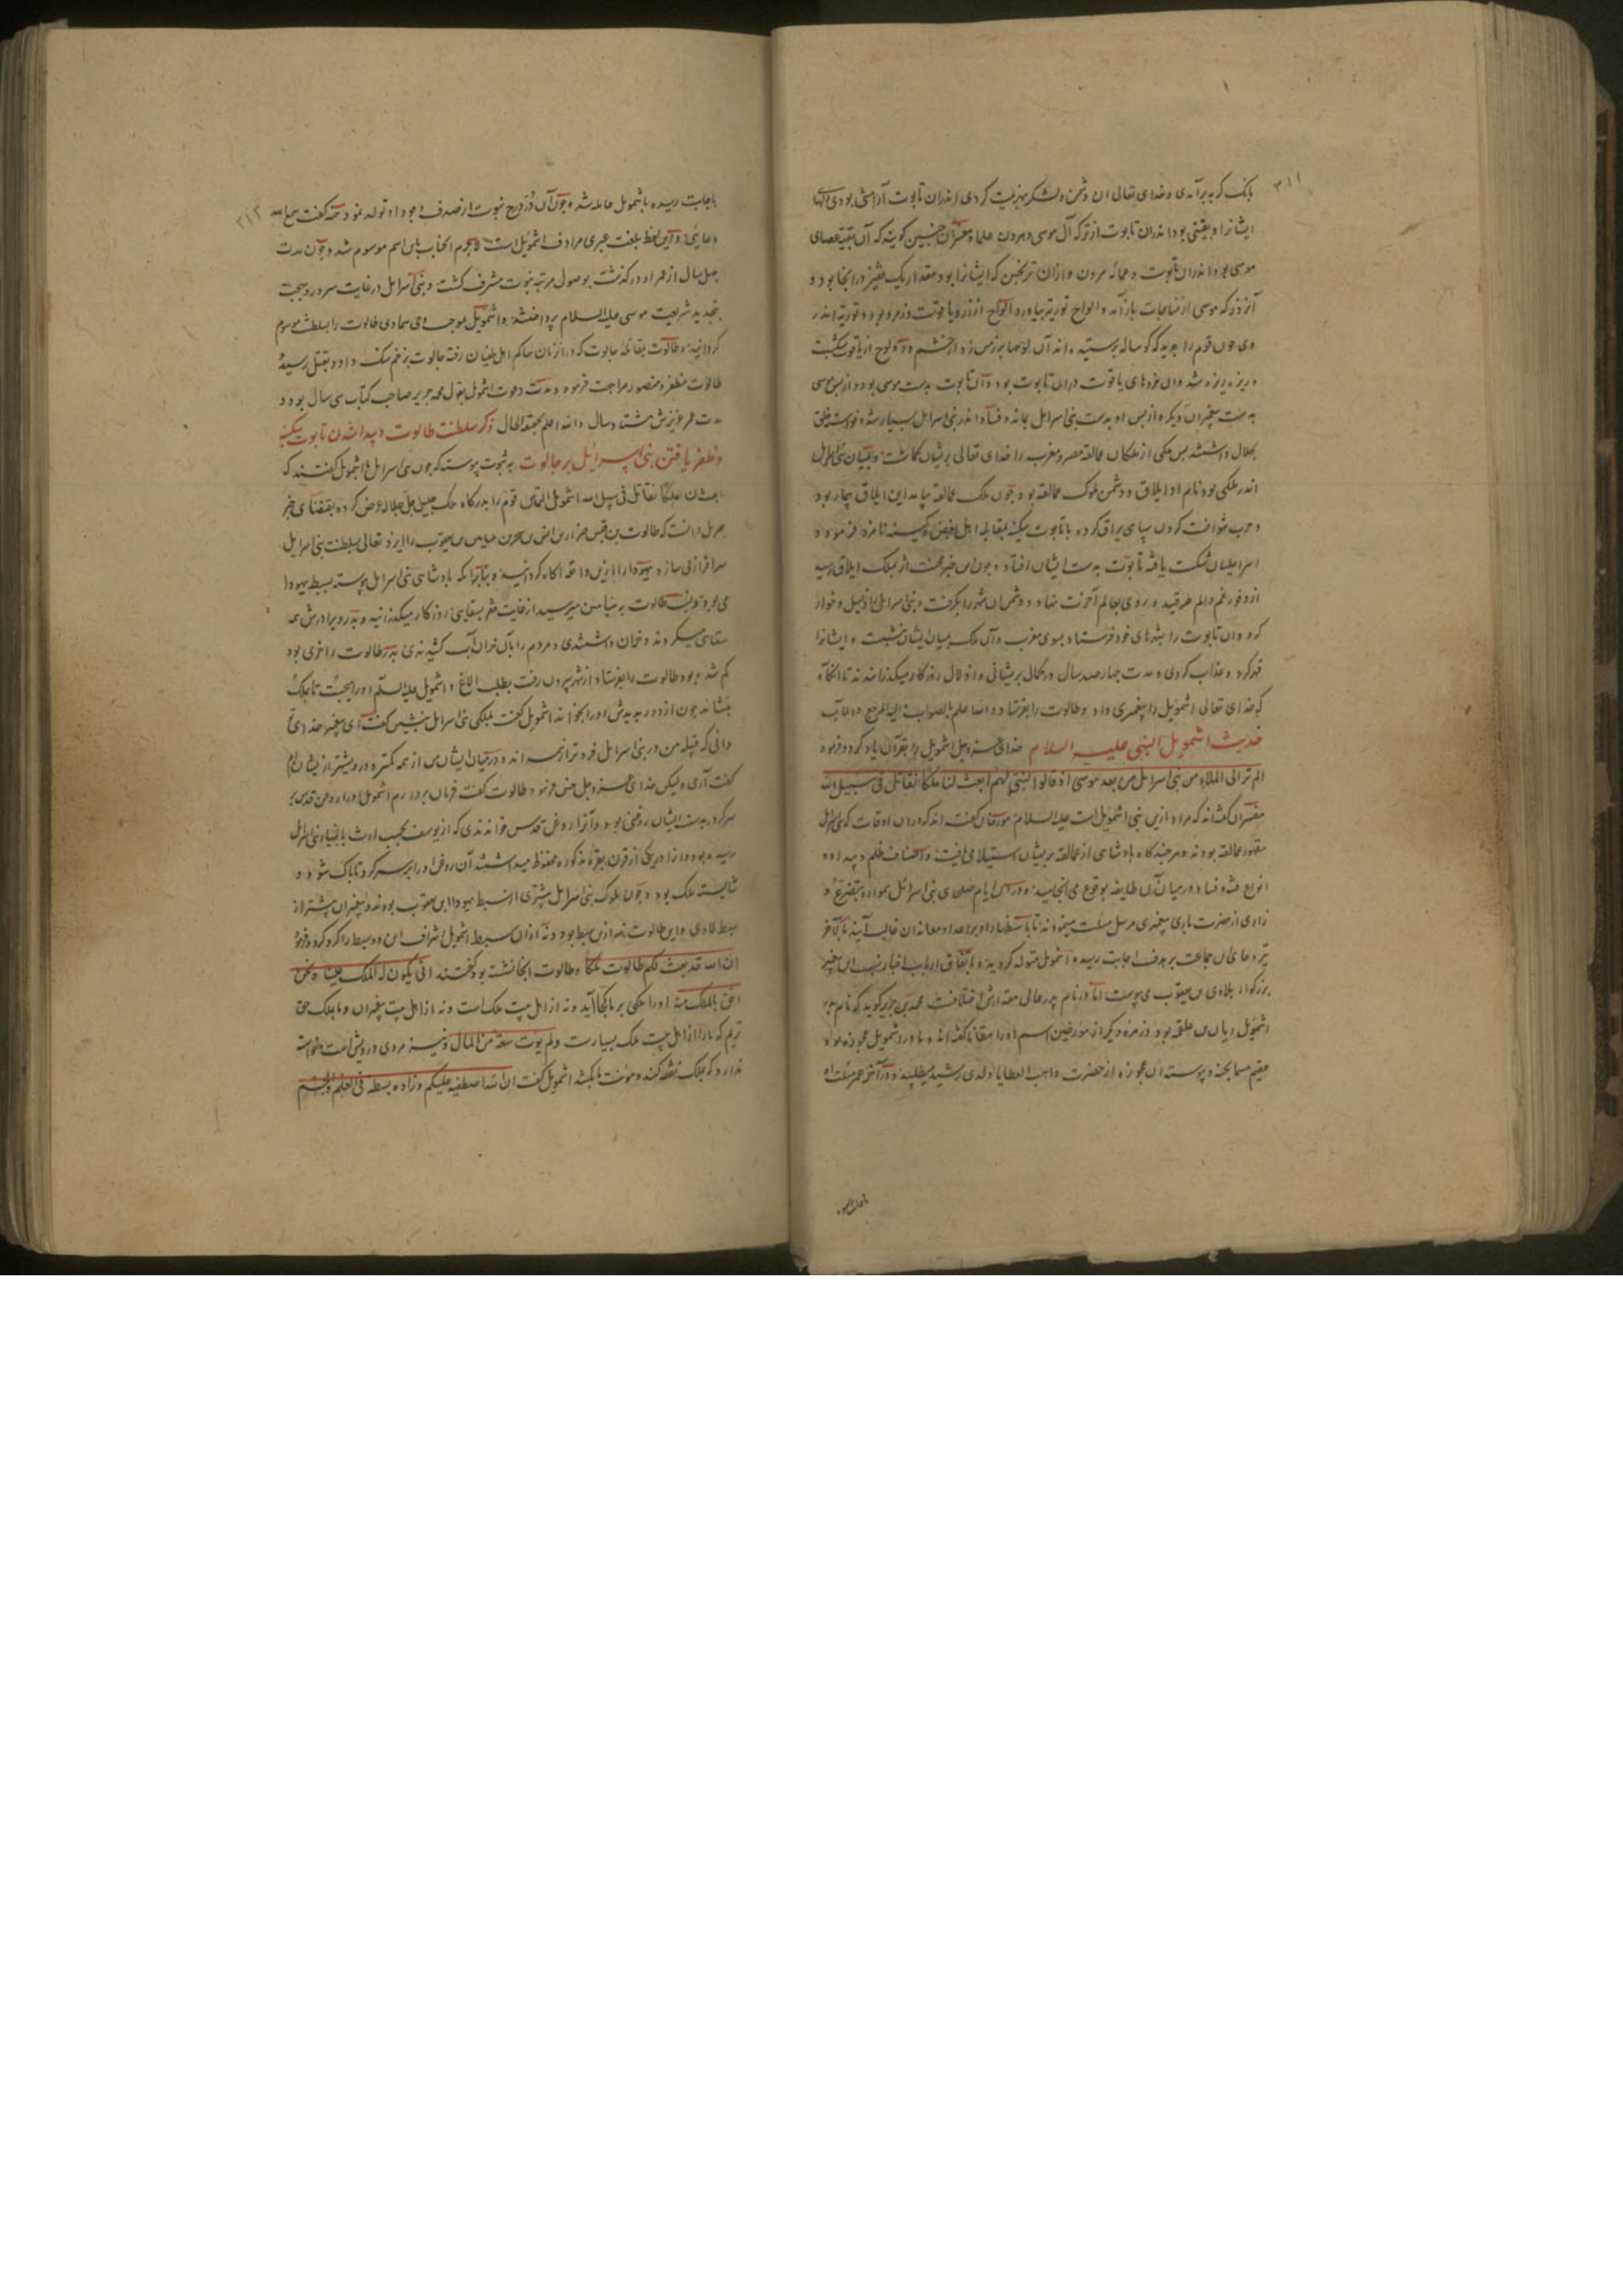 ۳۱۱
بانک کربه برآمدی و خدای تعالی ان دشمن و لشکر بهزیمت کردی اندران تابوت آرامش بودی دلهای
ایشانرا و بقیتی بود اندران تابوت از ترکه آل موسی و هرون علما و مفسران چنین کویند که آن بقیه عصای
موسی بود اندران تابوت و عمامه هرون و ازان ترنجبین که ایشانرا بود مقدار یک قفیز در انجا بود و
آنروز که موسی از مناجات باز آمد و الواح توریة بیاورد الواح از زر و یاقوت و زمرد بود و توریة اندر
وی چون قوم را بدید که کوساله پرستیده اند آن لوحها بر زمین زد از خشم و لوح از یاقوت بشکست
و ریزه ریزه شد وان خردهای یاقوت دران تابوت بود و آن تابوت بدست موسی بود و از پس موسی
بدست پیغمبران دیکر و از پس او بدست بنی اسرایل بماند و فساد اندر بنی اسرایل بسیار شد و خواسته خلق
بحلال داشتند پس ملکی از ملکان عمالقه مصر و مغرب را خدای تعالی بریشان کماشت و بمیان بنی اسرایل
اندر ملکی بود نام او ایلاق و دشمن ملوک عمالقه بود و چون ملک عمالقه بیامد این ایلاق بیچاره بود
و حرب نتوانست کردن سپاهی یراق کرده با تابوت سکینه بمقابله اهل بغض و کینه نامزد فرمود و
اسرایلیان شکست یافته تابوت بدست ایشان افتاد و چون این خبر محنت اثر بملک ایلاق رسید
از وفور غم و الم طرقید و روی بعالم آخرت نهاد و دشمنان شهر را بکرفت و بنی اسرایل را ذلیل و خوار
کرد وان تابوت را بشهرهای خود فرستاد بسوی مغرب و آن ملک بمیان ایشان بنشست و ایشانرا
قهر کرد و عذاب کردی و مدت چهار صد سال در کمال پریشانی و اذلال روزکار میکذرانیدند تا انکاه
که خدای تعالی اشمویل را پیغمبری داد و طالوت را بفرستاد و الله اعلم بالصواب و الیه المرجع و المآب
حدیث اشمویل النبی علیه السلام خدای عز و جل اشمویل را بقرآن یاد کرد و فرمود
الم تر الی الملاء من بنی اسرایل من بعد موسی اذ قالوا لنبی لهم ابعث لنا ملکا نقاتل فی سبیل الله
مفسران کفته اند که مراد ازین نبی اشمویل است علیه السلام مورخان کفته اند که دران اوقات که بنی اسرایل
مقهور عمالقه بودند و هر چند کاه بادشاهی از عمالقه بریشان استیلا می یافت و اصناف ظلم و بیداد و
انواع فتنه و فساد در میان آن طایفه بوقوع می انجامید و دران ایام صلحای بنی اسرائل همواره بتضرع و
زاری از حضرت باری پیغمبری مرسل مسئلت مینمودند تا باستظهار او بر اعدا و معاندان غالب آیند بالاخر
تیر دعای ان جماعت بر هدف اجابت رسیده اشمویل متولد کردید و باتفاق ارباب اخبار نسب این پیغمبر
بزرکوار بلاوی بن یعقوب می پیوست اما در نام پدر عالی مقدارش اختلافست محمد بن جریر کوید که نام پدر
اشمویل ریان بن علقمه بود و زمره دیکر از مورخین اسم او را هلقانا کفته اند و مادر اشمویل عجوزه بود
عقیم مسما بحنه و پیوسته ان عجوزه از حضرت واهب العطایا ولدی رشید میطلبید و در آخر عمر مسئلت او
۳۱۲
باجابت رسیده باشمویل حامله شد و چون آن در درج نبوت از صدف وجود او تولد نمود حنه کفت سمع الله
دعایی و آین لفظ بلغت عبری مرادف اشمویل است لاجرم انجناب باین اسم موسوم شد و چون مدت
چهل سال از عمر او در کذشت بوصول مرتبه نبوت مشرف کشت و بنی اسرایل در غایت سرور و بهجت
بتجدید شریعت موسی علیه السلام پرداختند و اشمویل بموجب وحی سماوی طالوت را بسلطنت موسوم
کردانید و طالوت بمقاتله جالوت که دران زمان حاکم اهل طغیان رفته جالوت بزخم سنک داود بقتل رسید
طالوت مظفر و منصور مراجعت فرمود و مدت دعوت اشمویل بقول محمد جریر صاحب کتاب سی سال بود و
مدت عمر عزیزش هشتاد سال و الله اعلم بحقیقة الحال ذکر سلطنت طالوت و پیدا شدن تابوت سکینه
و ظفر یافتن بنی اسرایل بر جالوت به ثبوت پیوسته که چون بنی اسرایل با اشمویل کفتند که
ابعث لنا ملکا نقاتل فی سبیل الله اشمویل التماس قوم را بدرکاه ملک جلیل جل جلاله عرض کرده بمقتضای خبر
جبریل دانست که طالوت بن قیس بن یعقوب را ایزد تعالی بسلطنت بنی اسرایل
سرافراز می سازد بیهودا را ازین واقعه اکاه کردانید و بنابرانکه بادشاهی بنی اسرایل پیوسته بسبط یهودا
می بود و نسب طالوت به بنیامین میرسید از غایت فقر بسقایی روزکار میکذرانید و پدر و برادرش هم
سقایی میکردند و خران داشتندی و مردم را بآن خران آب کشیدندی پدر طالوت را خری بود
کم شده بود طالوت را بفرستاد از شهر بیرون رفت بطلب الاغ و اشمویل علیه السلام او را بجست تا بملک
بنشاند چون از دور بدیدش او را بخواند اشمویل کفت بملکی بنی اسرایل بنشین کفت ای پیغمبر خدای تو
دانی که قبیله من در بنی اسرایل فروتر از همه اند و در میان ایشان من از همه کمتر و درویشتر از ایشان
کفت آری ولیکن خدای عز و جل چنین فرمود طالوت کفت فرمان بردارم اشمویل او را روغن قدس بر
سر کرد و بدست ایشان روغنی بود و آنرا روغن قدس خواندندی که از یوسف بحسب ارث بانبیاء بنی اسرایل
رسیده بود و انرا در یکی از قرون بقره مذکوره محفوظ میداشتند آن روغن او را بر سر کرد تا پاک شود و
شایسته ملک بود و چون ملوک بنی اسرایل بیشتری از سبط یهودا ابن یعقوب بودند و پیغمبران بیشتر از
سبط لاوی و این طالوت نه ازین سبط بود و نه ازان سبط اشمویل اشراف این دو سبط را کرد کرد و فرمود
ان الله قد بعث لکم طالوت ملکا و طالوت انجا نشسته بود کفتند انی یکون له الملک علینا و نحن
احق بالملک منه او را ملکی بر ما کجا آید و نه از اهل بیت ملک است و نه از اهل بیت پیغمبران و ما بملک حق
تریم که ما را از اهل بیت ملک بسیارست ولم یوت سعة من المال و نیز مردی درویش است و خواسته
ندارد که بملک نفقه کند و مونت ما بکشد اشمویل کفت ان الله اصطفیه علیکم و زاده بسطة فی العلم والجسم